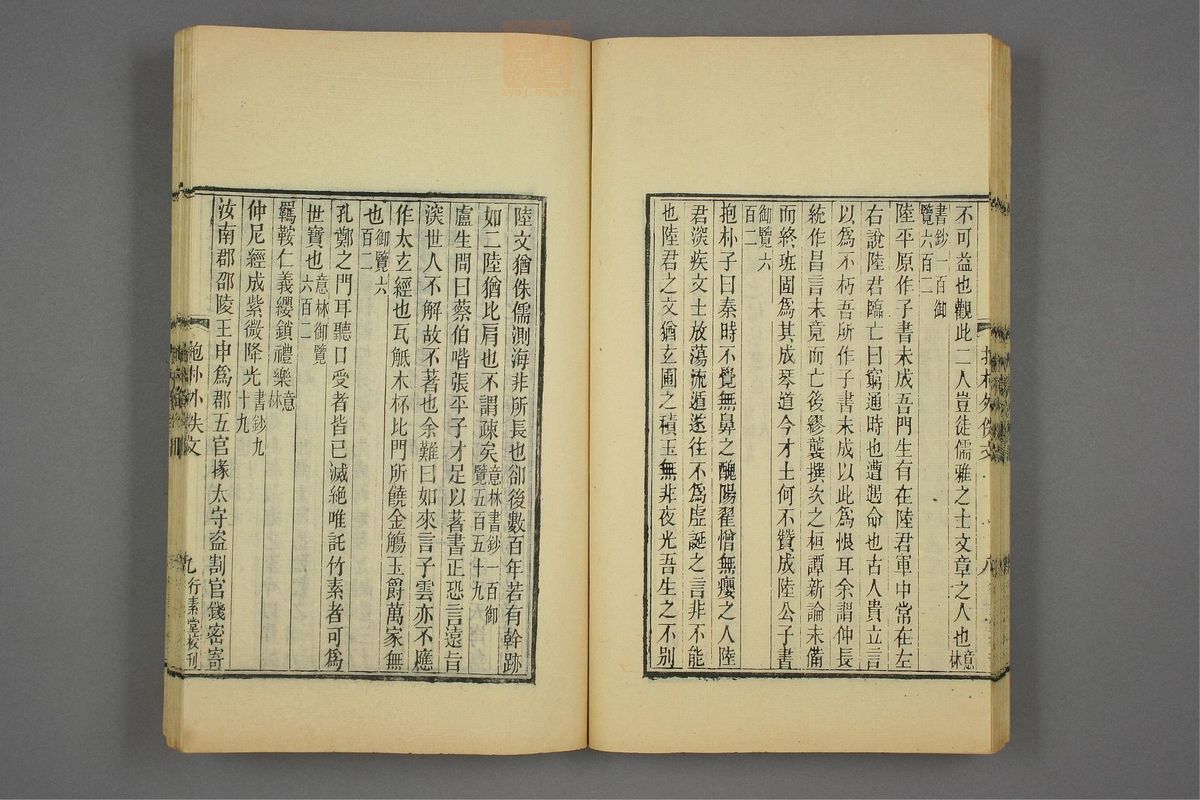 不可益也觀此二人豈徒儒雅之士文章之人也意林
書鈔一百御覽六百二
陸平原作子書未成吾門生有在陸君軍中常在左
右說陸君臨亡曰窮通時也遭遇命也古人貴立言
以爲不朽吾所作子書未成以此爲恨耳余謂仲長
統作昌言未竟而亡後繆襲撰次之桓譚新論未備
而終班固爲其成琴道今才士何不贊成陸公子書
御覽六百二
抱朴子曰秦時不覺無鼻之醜陽翟憎無癭之人陸
君深疾文士放蕩流遁遂往不爲虛誕之言非不能
也陸君之文猶玄圃之積玉無非夜光吾生之不別
抱朴外佚文
八
陸文猶侏儒測海非所長也卻後數百年若有幹跡
如二陸猶比肩也不謂疎矣意林書鈔一百御覽五百五十九
盧生問曰蔡伯喈張平子才足以著書正恐言遠旨
深世人不解故不著也余難曰如來言子雲亦不應
作太玄經也瓦甒木杯比門所饒金觴玉爵萬家無
也御覽六百二
孔鄭之門耳聽口受者皆已滅絕唯託竹素者可爲
世寶也意林御覽六百二
羈鞍仁義纓鎖禮樂意林
仲尼經成紫微降光書鈔九十九
汝南郡邵陵王申爲郡五官掾太守盜割官錢密寄
抱朴外佚文
九
行素堂校刊